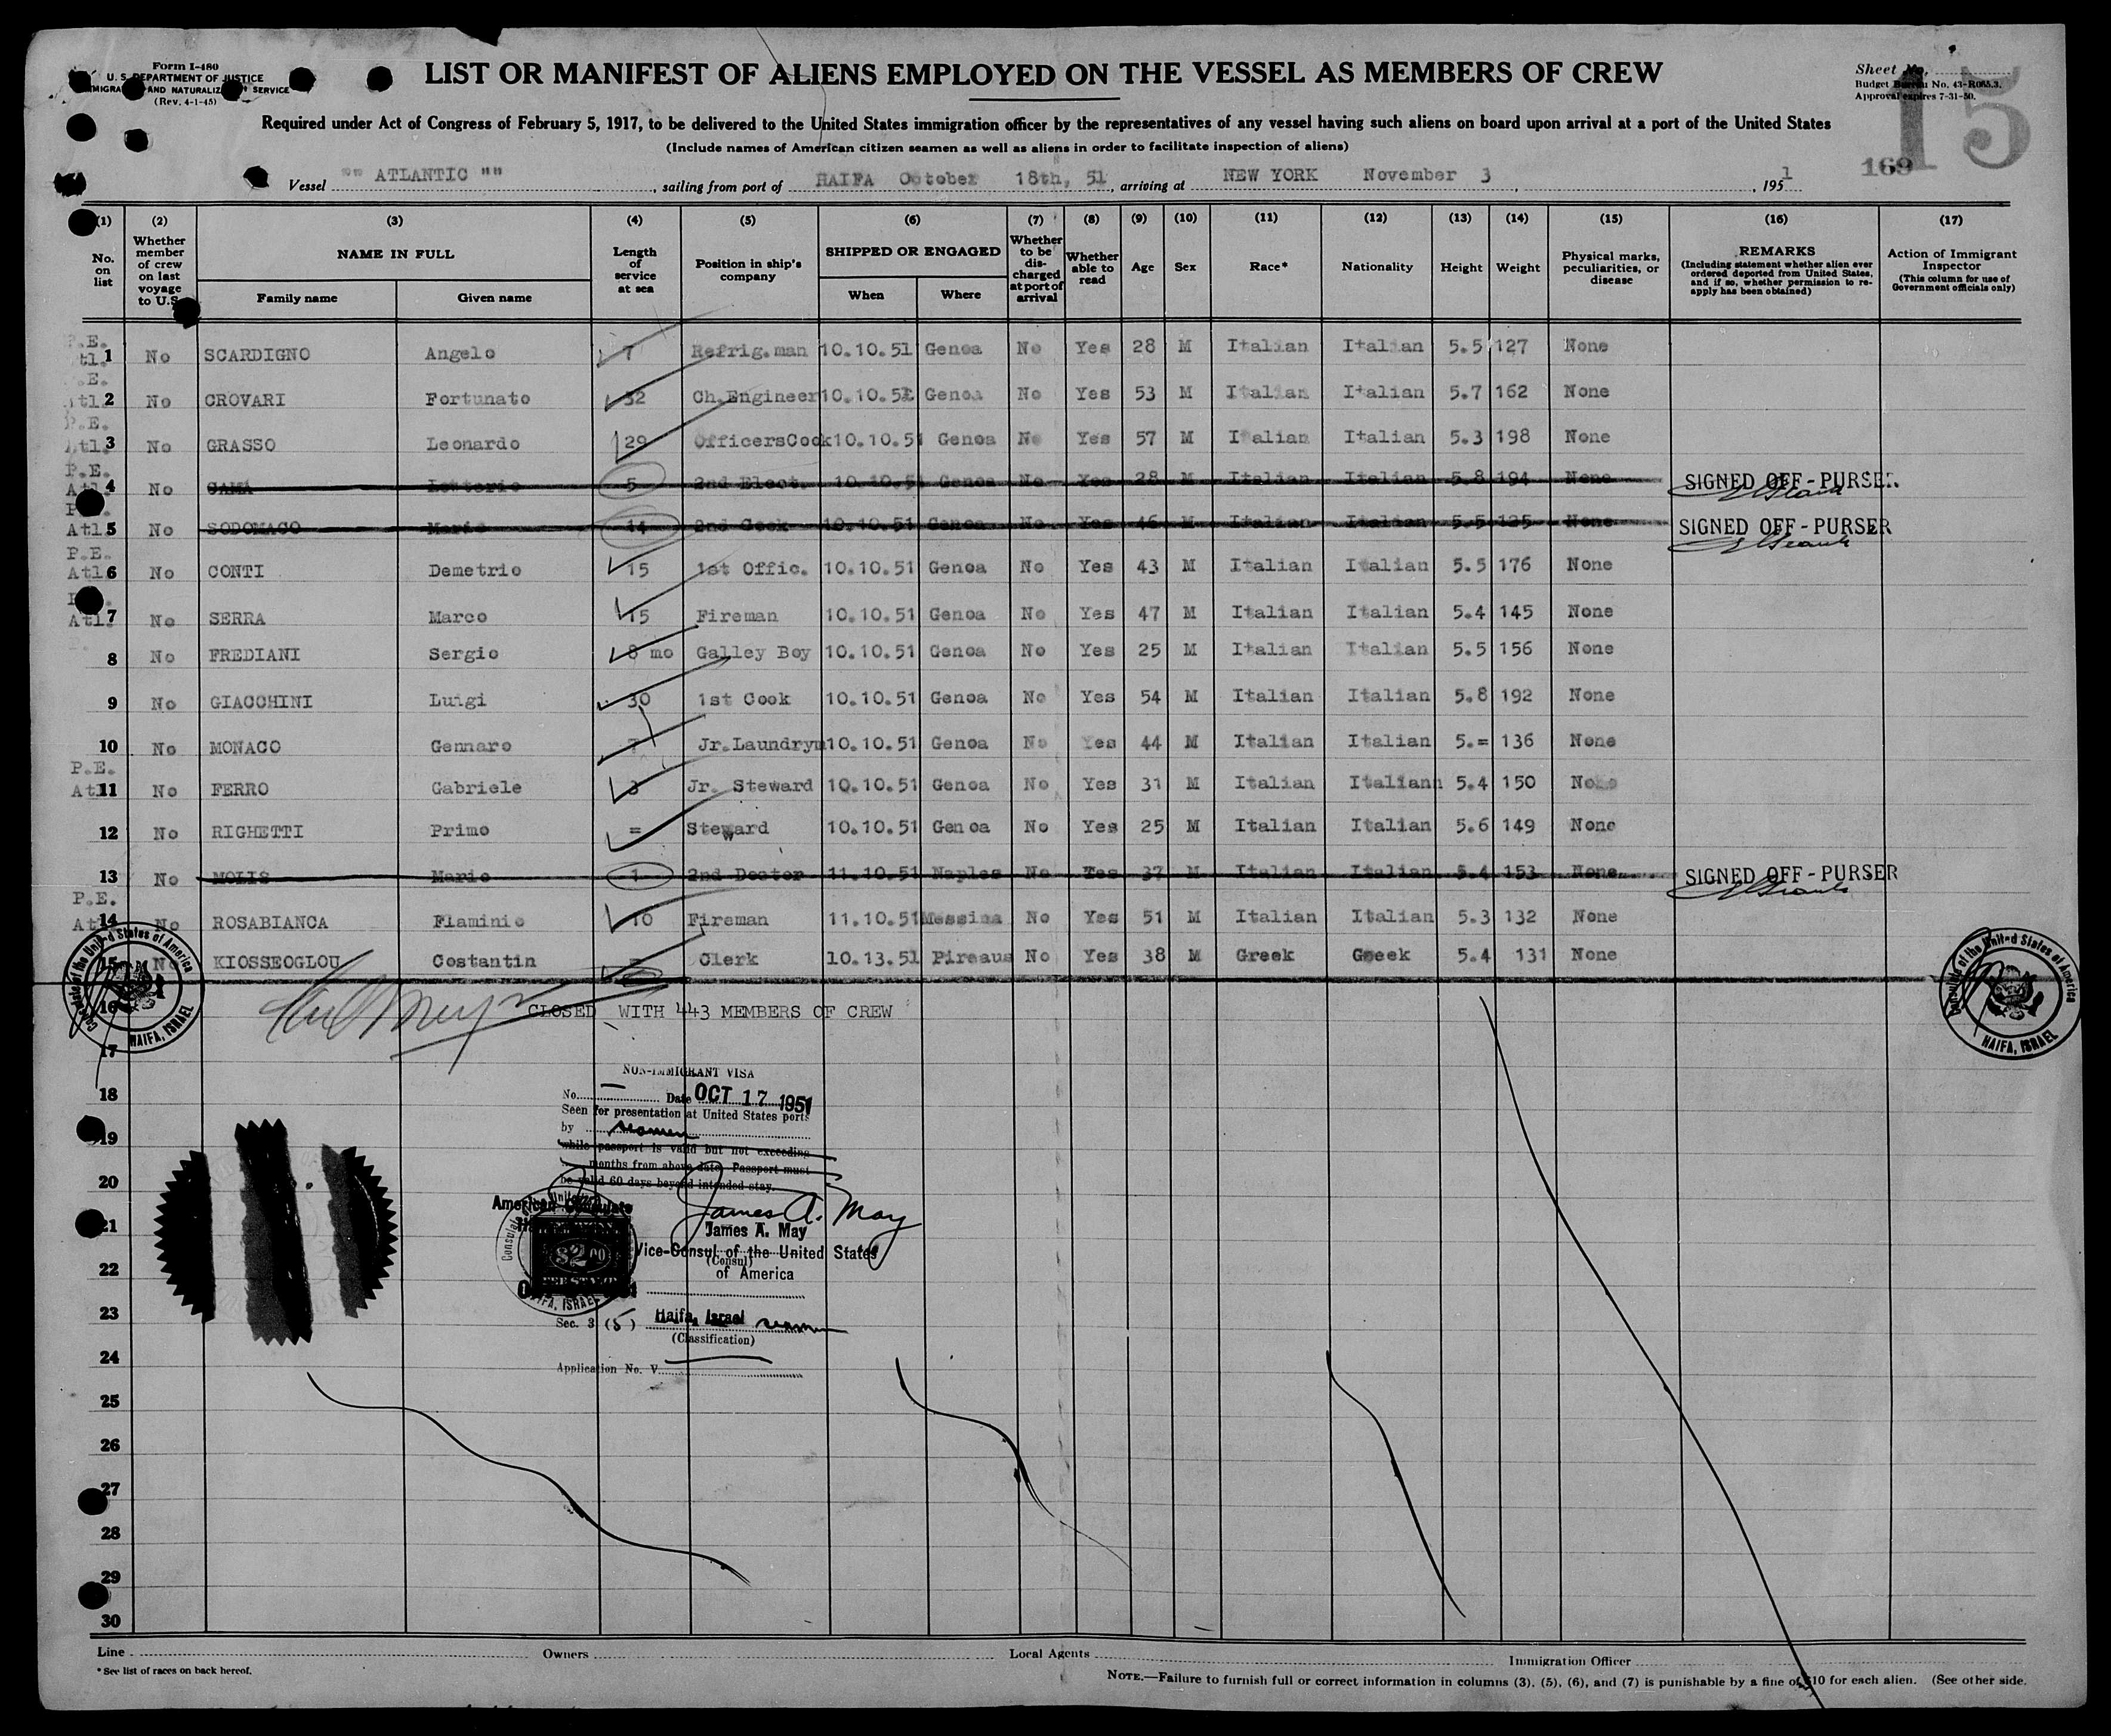 Form I-480
U. S. DEPARTMENT OF JUSTICE
AND NATURALIZATION SERVICE
(Rev. 4-1-45)
LIST OR MANIFEST OF ALIENS EMPLOYED ON THE VESSEL AS MEMBERS OF CREW
Sheet No.
Budget Bureau No. 43-R065.3.
Approval expires 7-31-50.
15
Required under Act of Congress of February 5, 1917, to be delivered to the United States immigration officer by the representatives of any vessel having such aliens on board upon arrival at a port of the United States
(Include names of American citizen seamen as well as aliens in order to facilitate inspection of aliens)
169
Vessel "" ATLANTIC "" , sailing from port of HAIFA October 18th, 51 , arriving at NEW YORK November 3 , 1951
(1) (2) (3) (4) (5) (6) (7) (8) (9) (10) (11) (12) (13) (14) (15) (16) (17)
No. on list
Whether member of crew on last voyage to U.S.
NAME IN FULL
Family name Given name
Length of service at sea
Position in ship's company
SHIPPED OR ENGAGED
When Where
Whether to be discharged at port of arrival
Whether able to read
Age Sex Race* Nationality Height Weight
Physical marks, peculiarities, or disease
REMARKS
(Including statement whether alien ever ordered deported from United States, and if so, whether permission to re-apply has been obtained)
Action of Immigrant Inspector
(This column for use of Government officials only)
P.E.
Atl. 1 No SCARDIGNO Angelo 7 Refrig.man 10.10.51 Genoa No Yes 28 M Italian Italian 5.5 127 None
P.E.
Atl. 2 No CROVARI Fortunato 32 Ch.Engineer 10.10.51 Genoa No Yes 53 M Italian Italian 5.7 162 None
P.E.
Atl. 3 No GRASSO Leonardo 29 OfficersCook 10.10.51 Genoa No Yes 57 M Italian Italian 5.3 198 None
P.E.
Atl. 4 No 5 2nd Elect. 10.10.51 Genoa No Yes 28 M Italian Italian 5.8 194 None SIGNED OFF - PURSER
Atl. 5 No SODOMACO Mario 14 2nd Cook 10.10.51 Genoa No Yes 46 M Italian Italian 5.5 135 None SIGNED OFF - PURSER
P.E.
Atl. 6 No CONTI Demetrio 15 1st Offic. 10.10.51 Genoa No Yes 43 M Italian Italian 5.5 176 None
Atl. 7 No SERRA Marco 15 Fireman 10.10.51 Genoa No Yes 47 M Italian Italian 5.4 145 None
8 No FREDIANI Sergio 8 mo Galley Boy 10.10.51 Genoa No Yes 25 M Italian Italian 5.5 156 None
9 No GIACCHINI Luigi 30 1st Cook 10.10.51 Genoa No Yes 54 M Italian Italian 5.8 192 None
10 No MONACO Gennaro 7 Jr.Laundrym 10.10.51 Genoa No Yes 44 M Italian Italian 5.= 136 None
P.E.
Atl 11 No FERRO Gabriele 3 Jr. Steward 10.10.51 Genoa No Yes 31 M Italian Italiann 5.4 150 None
12 No RIGHETTI Primo = Steward 10.10.51 Genoa No Yes 25 M Italian Italian 5.6 149 None
13 No MOLIS Mario 1 2nd Doctor 11.10.51 Naples No Yes 37 M Italian Italian 5.4 153 None SIGNED OFF - PURSER
P.E.
Atl 14 No ROSABIANCA Flaminio 10 Fireman 11.10.51 Messina No Yes 51 M Italian Italian 5.3 132 None
15 No KIOSSEOGLOU Costantin = Clerk 10.13.51 Piraeus No Yes 38 M Greek Greek 5.4 131 None
Consulate of the United States of America HAIFA, ISRAEL
Consulate of the United States of America HAIFA, ISRAEL
16
CLOSED WITH 443 MEMBERS OF CREW
17
NON-IMMIGRANT VISA
18
No. Date OCT 17 1951
Seen for presentation at United States ports
by seamen
19
while passport is valid but not exceeding
months from above date. Passport must
be valid 60 days beyond intended stay.
20
American Consulate
James A. May
21
James A. May
Vice-Consul of the United States
(Consul)
of America
$2.00
FEE STAMP
HAIFA, ISRAEL
22
23
Haifa, Israel
Sec. 3 (5) seamen
(Classification)
24
Application No. V
25
26
27
28
29
30
Line Owners Local Agents Immigration Officer
* See list of races on back hereof.
NOTE.—Failure to furnish full or correct information in columns (3), (5), (6), and (7) is punishable by a fine of $10 for each alien. (See other side.